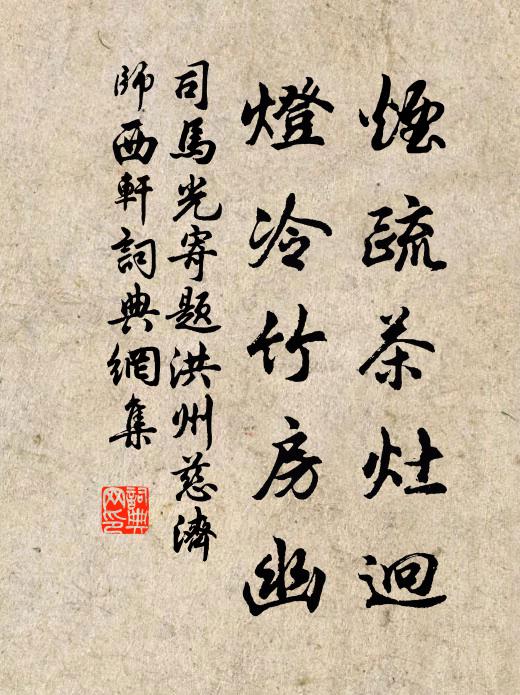 煙疏茶灶迥
燈冷竹房幽
司馬光寄題洪州慈濟
師西軒詞典網集
詞典
网印